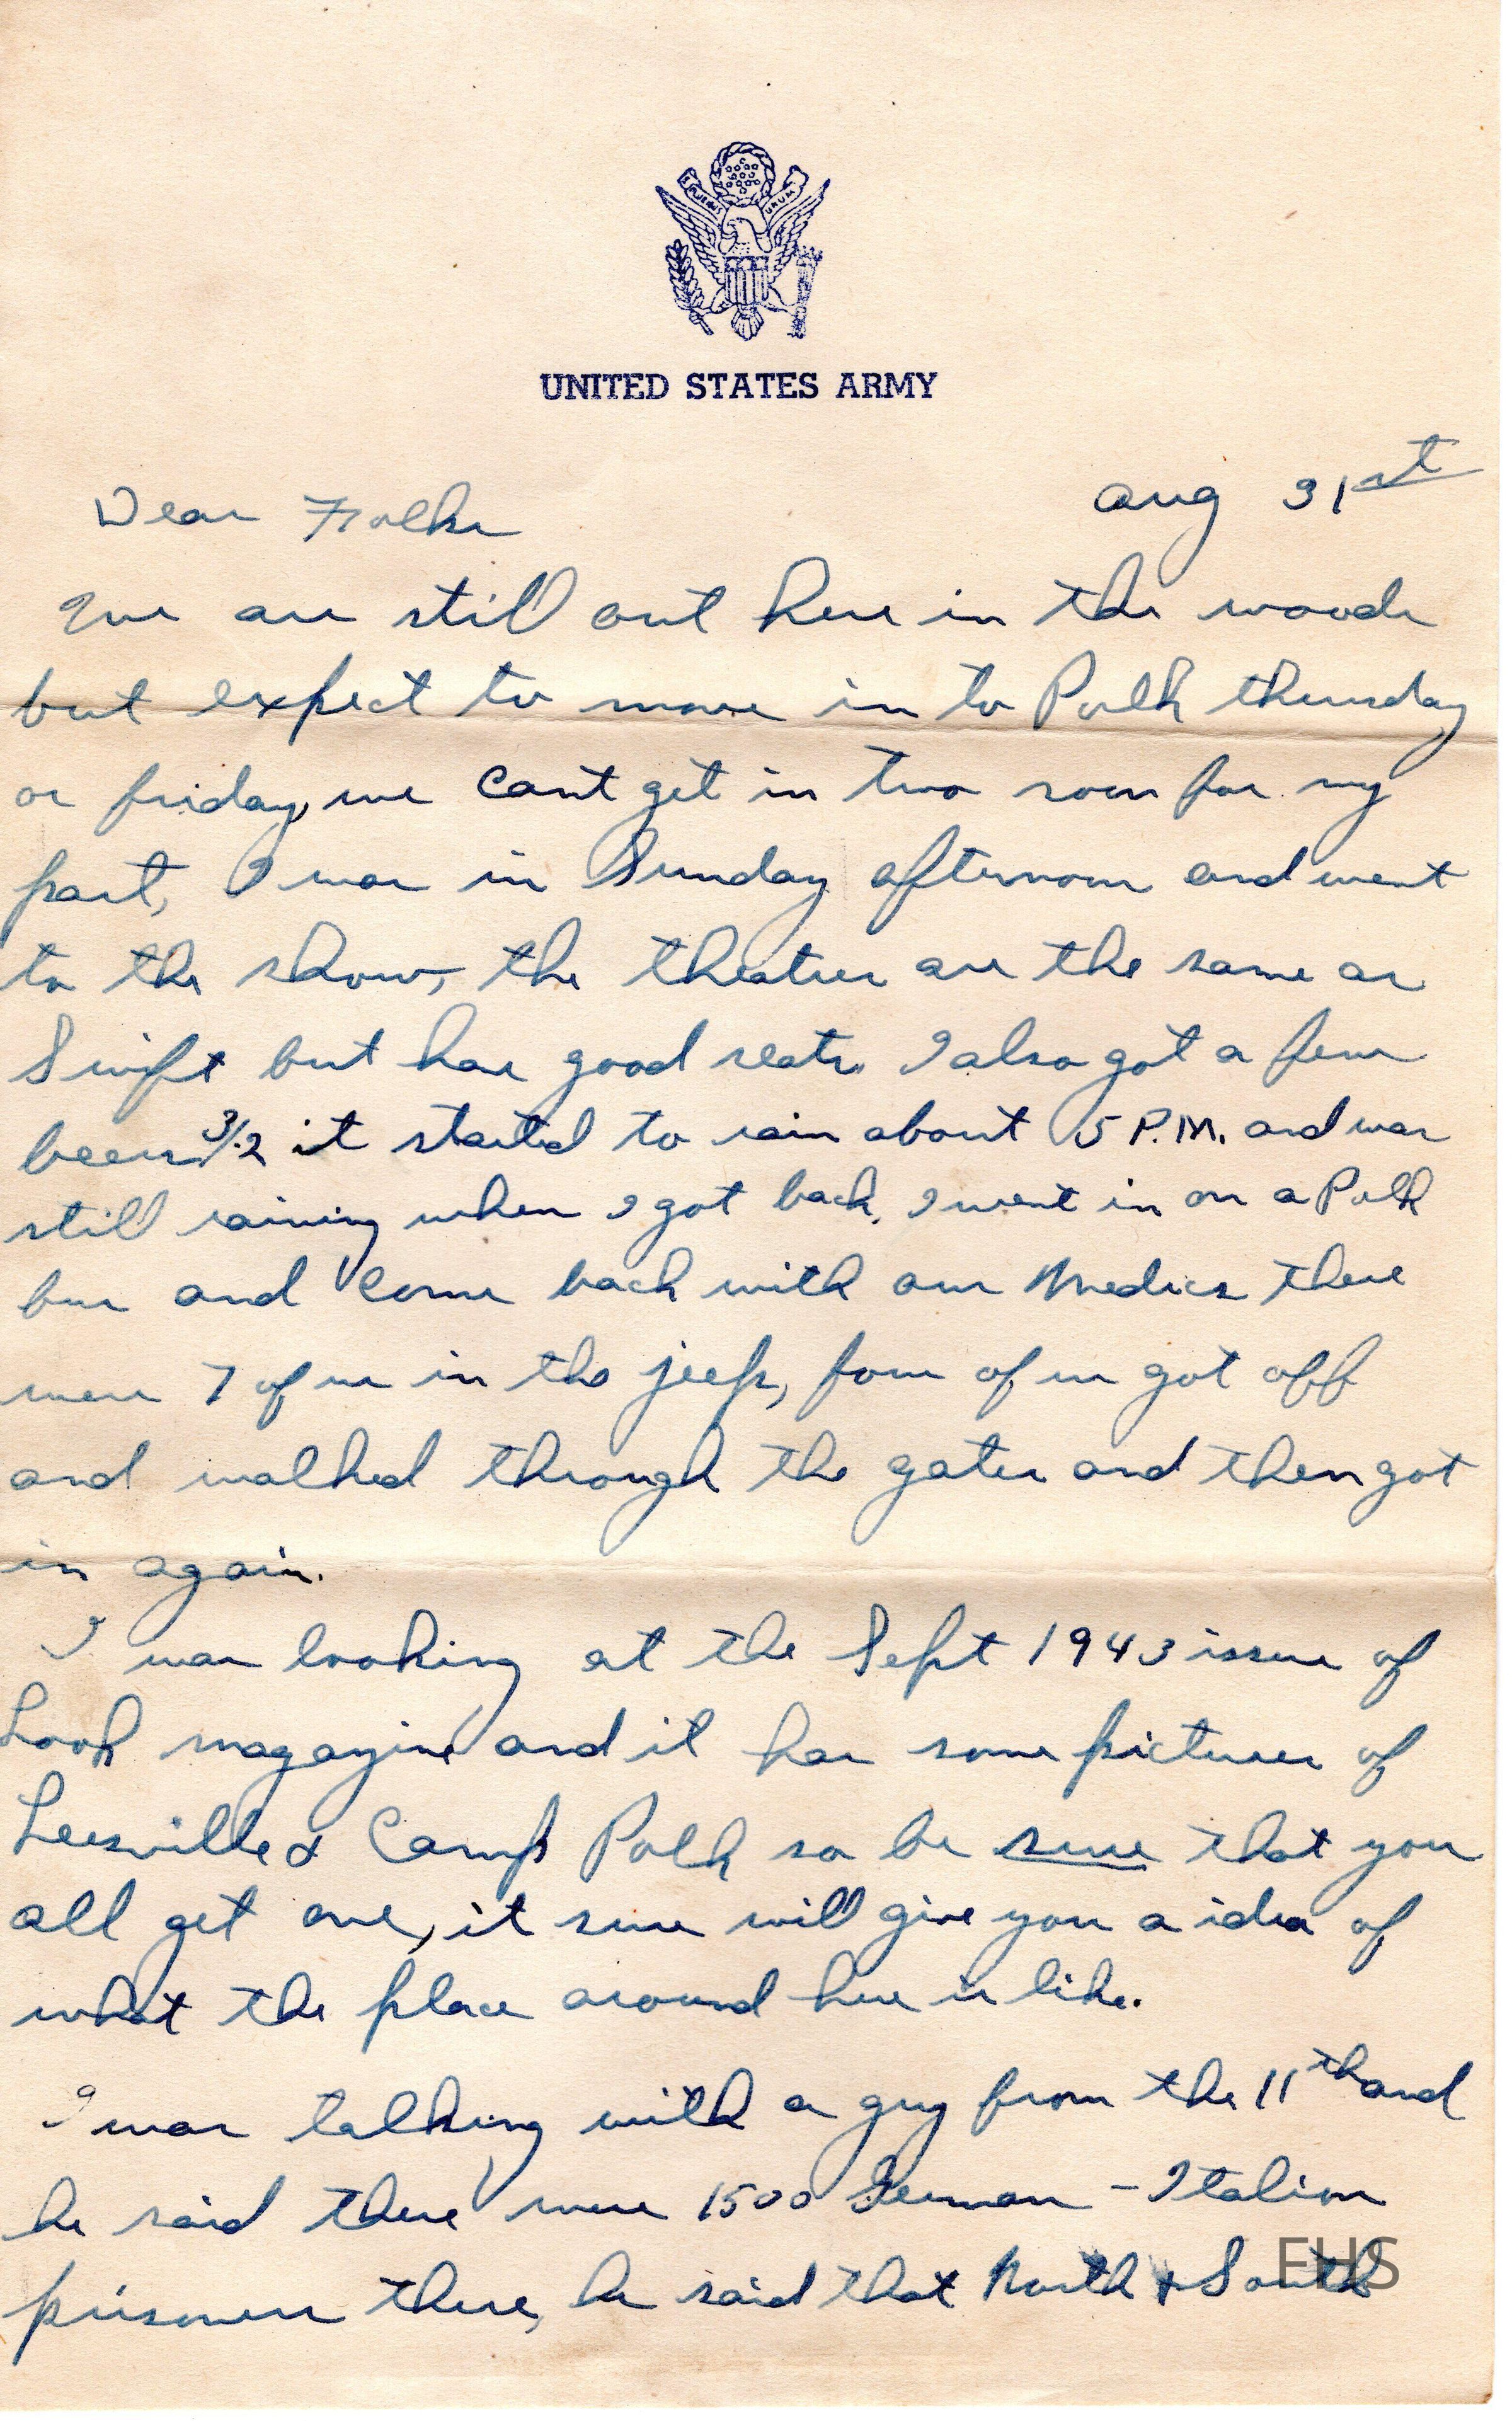 E PLURIBUS UNUM
UNITED STATES ARMY
Aug 31st
Dear Folks
We are still out here in the woods
but expect to move in to Polk thursday
or friday, we cant get in two soon for my
part, I was in Sunday afternoon and went
to the show, the theatres are the same as
Swift but has good seats. I also got a few
beers 3/.2 it started to rain about 5 P.M. and was
still raining when I got back, I went in on a Polk
bus and come back with our Medics there
were 7 of us in the jeep, four of us got off
and walked through the gates and then got
in again.
I was looking at the Sept 1943 issue of
Look magazine and it has some pictures of
Leesville & Camp Polk so be sure that you
all get one, it sure will give you a idea of
what the place around here is like.
I was talking with a guy from the 11th and
he said there were 1500 German - Italian
prisoners there, he said that North & South
EHS